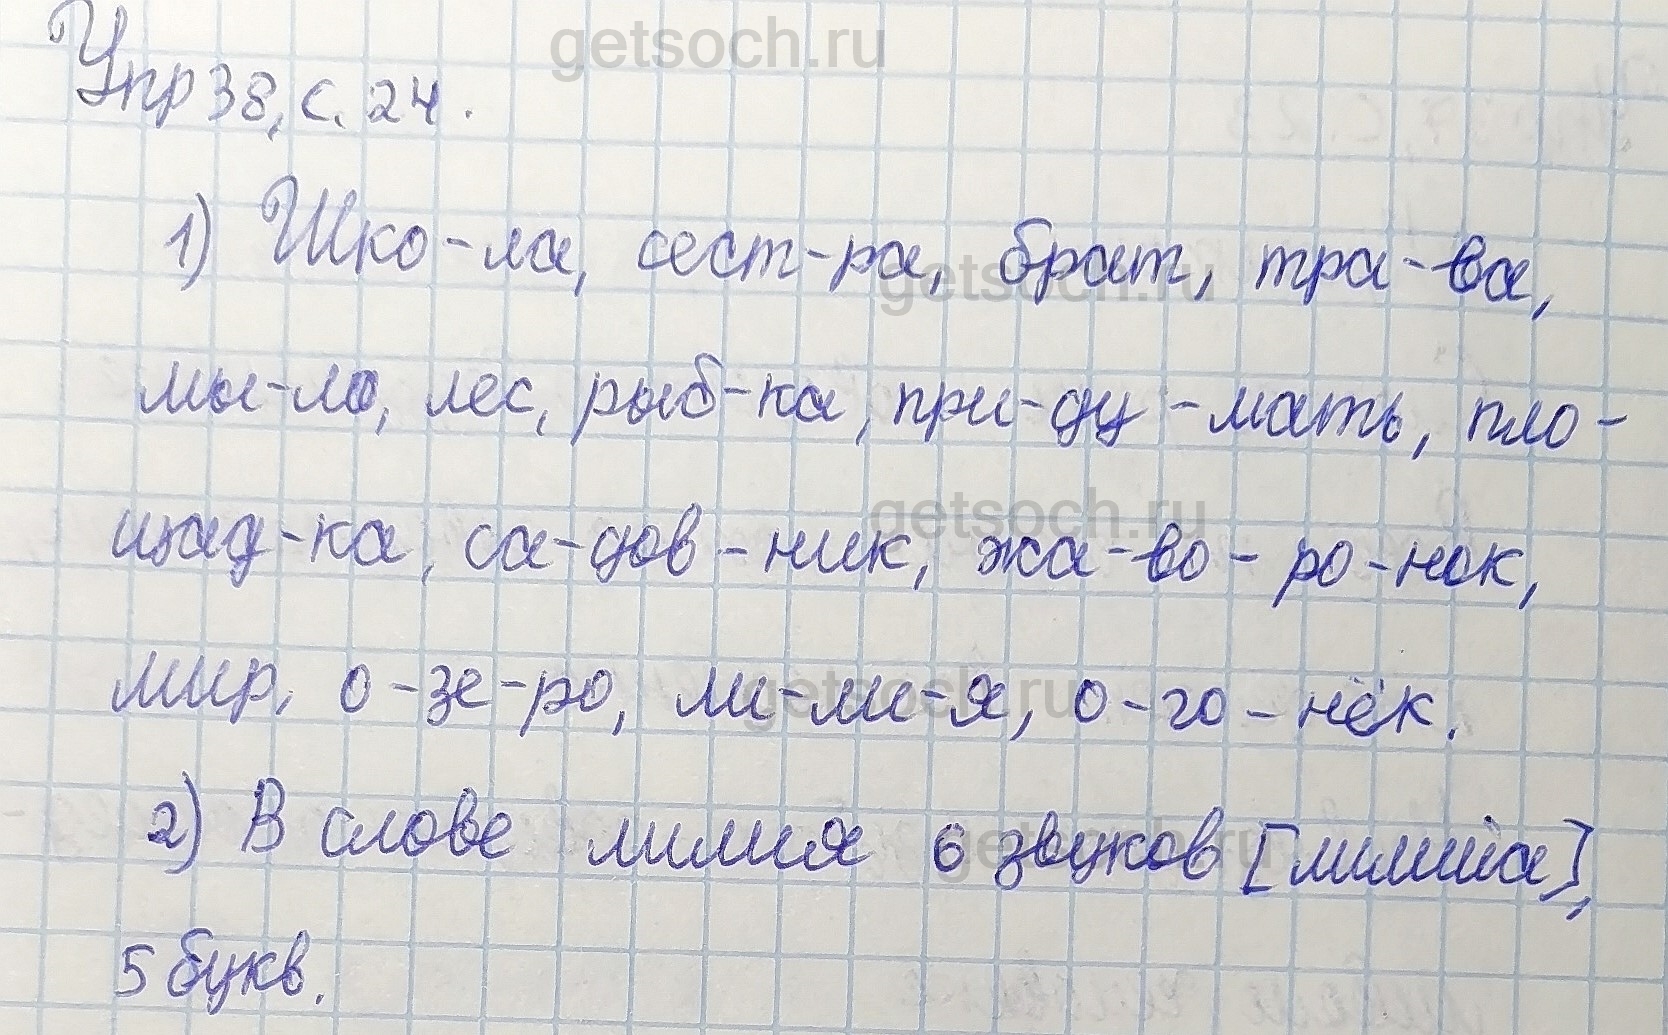 getsoch.ru
Упр 38, с. 24.
1) Шко-ла, сест-ра, брат, тра-ва,
getsoch.ru
мы-ло, лес, рыб-ка, при-ду-мать, пло-
getsoch.ru
щад-ка, са-дов-ник, жа-во-ро-нок,
мир, о-зе-ро, ли-ли-я, о-го-нёк.
getsoch.ru
2) В слове лилия 6 звуков [лилийа],
getsoch.ru
5 букв.